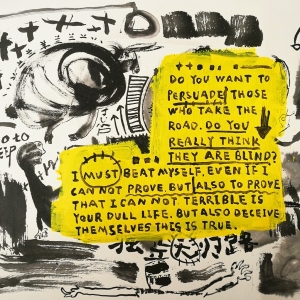 DO YOU WANT TO
PERSUADE THOSE
WHO TAKE THE
ROAD. DO YOU
REALLY THINK
THEY ARE BLIND?
I MUST BEAT MYSELF, EVEN IF I
CAN NOT PROVE. BUT ALSO TO PROVE
THAT I CAN NOT TERRIBLE IS
YOUR DULL LIFE. BUT ALSO DECEIVE
THEMSELVES THIS IS TRUE.